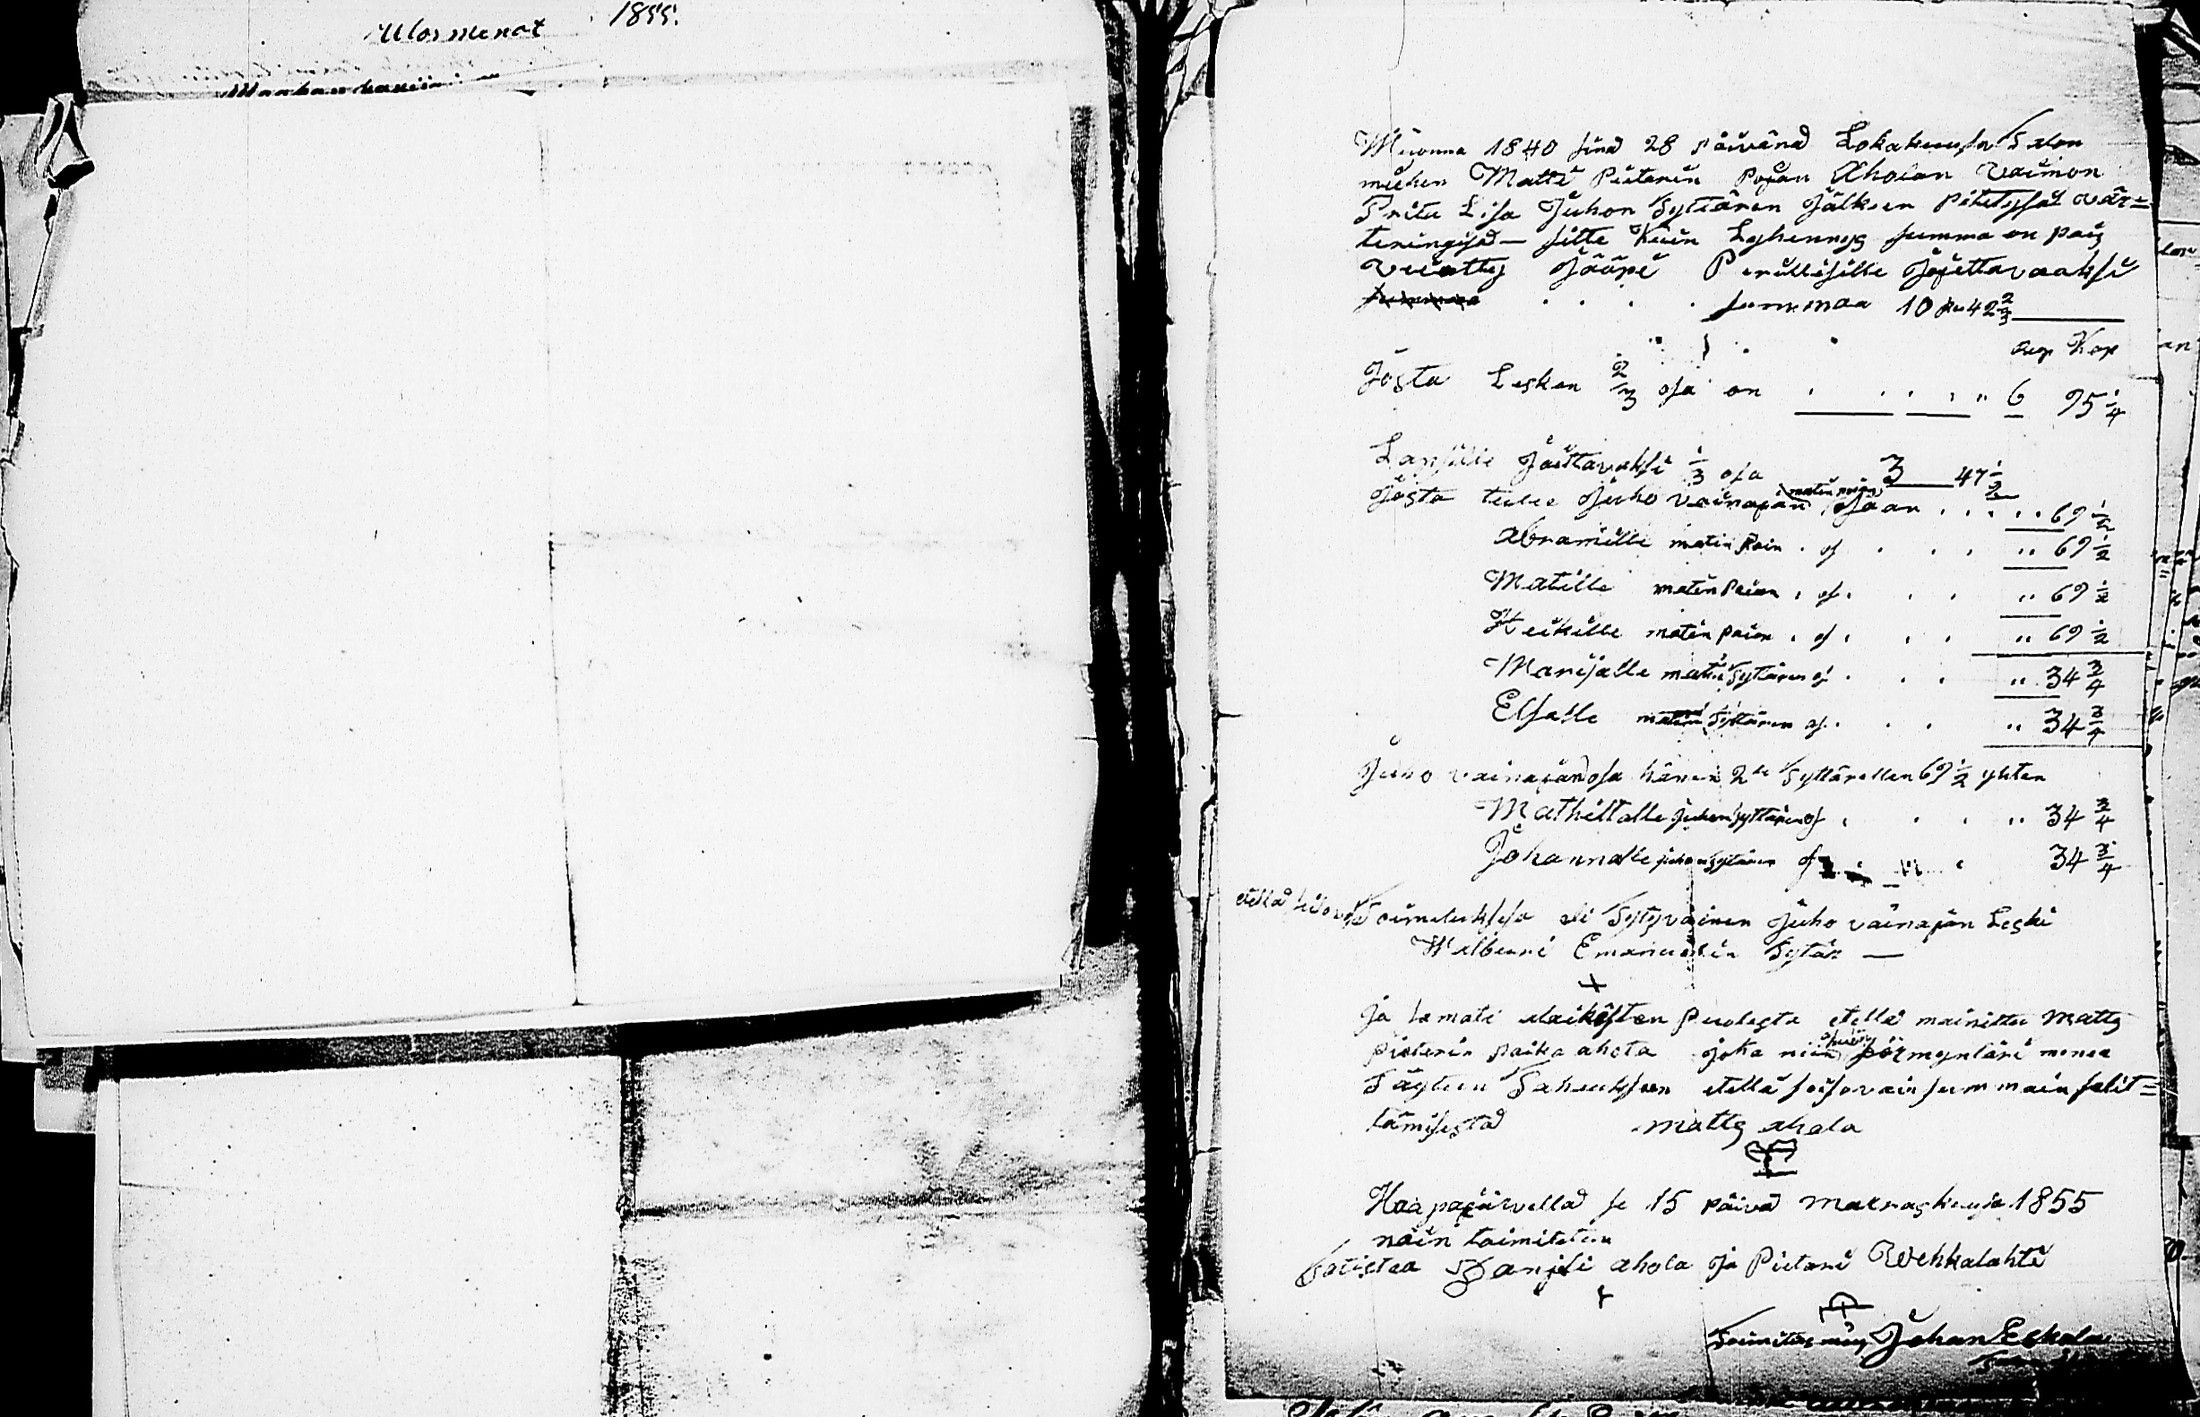 Ulosmenot 1855.
Wuonna 1840 sinä 28 päivänä Lokakuusa Talon
miehen Matti Pietarin pojan Aholan Vaimon
Prita Lisa Juhon Tyttären Jälkeen pitetysä wär=
teringisä — sitte Kuin Lyhennys summa on pois
Vuotty Jääpi Perillisille Jojettavaaksi
summa . . . . summaa 10 Ru 42 2/3
Rup Kop
Josta Lesken 2/3 osa on . . . „ 6 95 1/4
Lapsille Jaettavaksi 1/3 osa 3 47 1/2
Josta tulee Juho vainajan matin pojan Osaan . . . . 69 1/2
Abramille matin Poin . of . . . „ 69 1/2
Matille matin Poian . of . . . „ 69 1/2
Heikille matin poian . of . . . „ 69 1/2
Marijalle matin Tytären of . . . „ 34 3/4
Elsalle matin Tyttären of . . . „ 34 3/4
Juho vainajan osa hänen 2le Tyttärellen 69 1/2 yhten
Mathiltalle Juhon tyttären of . . . „ 34 3/4
Johannalle juhon tytären of 34 3/4
eli Tytyväinen Juho vainajan Leski
Walburi Emanuelin Tytär —
Ja samati alaikästen puolesta etellä mainittu Matts
pietarin poika ahola joka niin förmyntäri monea
Täyteen Taheuksen etellä seisovain summain selit=
tämisestä matts ahola
Haapajärvellä se 15 päivä marraskuusa 1855
näin toimitetun
Totistaa Danjeli ahola Ja Pietari Wehkalahti
Toimitus mies Johan Eskola